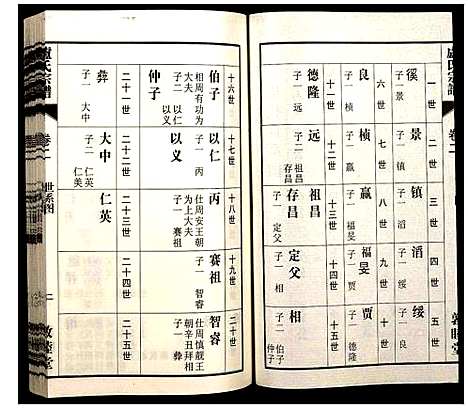 盧氏宗譜
卷二
敦睦堂
一世
徯
子一 景
六世
良
子一 桢
十一世
德隆
子一 远
二世
景
子一 镇
七世
桢
子一 赢
十二世
远
子二 祖昌
存昌
三世
镇
子一 滔
八世
赢
子一 福旻
十三世
祖昌
存昌
子一 定父
四世
滔
子一 绥
九世
福旻
子一 贾
十四世
定父
子一 相
五世
绥
子一 良
十世
贾
子一 德隆
十五世
相
子二 伯子
仲子
十六世
伯子
相周有功为
大夫
子二 以仁
以义
仲子
二十一世
彝
子一 大中
十七世
以仁
子一 丙
以义
二十二世
大中
子二 仁英
仁美
十八世
丙
仕周安王朝
为上大夫
子一 赛祖
二十三世
仁英
十九世
赛祖
子一 智睿
二十四世
二十世
智睿
仕周慎靓王
朝辛丑拜相
子一 彝
二十五世
盧氏宗譜
卷二
世系图
二
敦睦堂